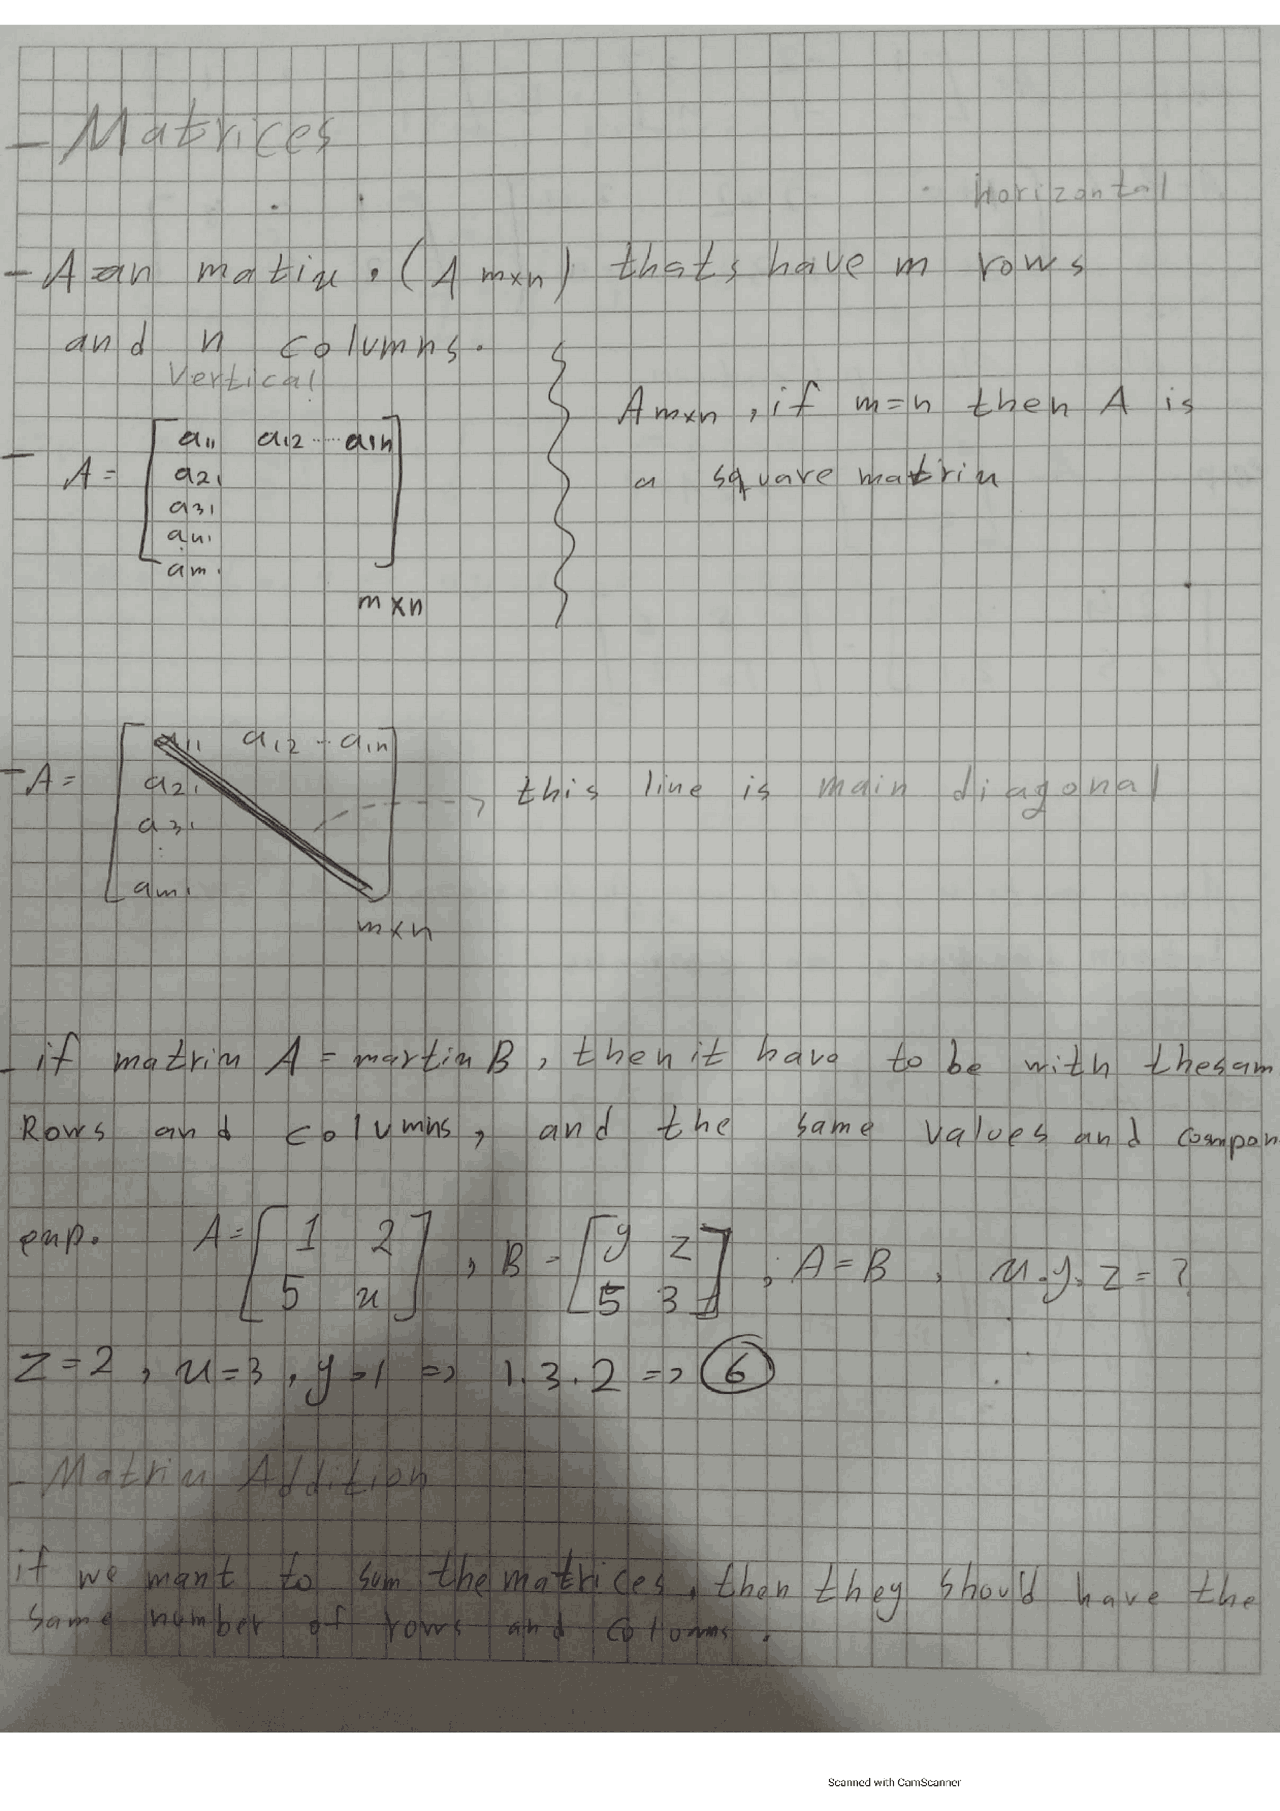 - Matrices
horizontal
- A an matix, (A mxn) thats have m rows
and n columns.
Vertical
Amxn, if m=n then A is
a square matrix
- A= [a11 a12 ... a1n
a21
a31
a41
am1]
mxn
- A= [a11 a12 - a1n
a21
a31
:
am1]
mxn
this line is main diagonal
- if matrix A = martix B, then it have to be with thesam
Rows and columns, and the same values and compon
exp. A=[1 2 5 x], B=[y z 5 3], A=B, x.y.z=?
z=2, x=3, y=1 => 1.3.2 => 6
- Matrix Addition
if we want to sum the matrices, then they should have the
same number of rows and colomns.
Scanned with CamScanner